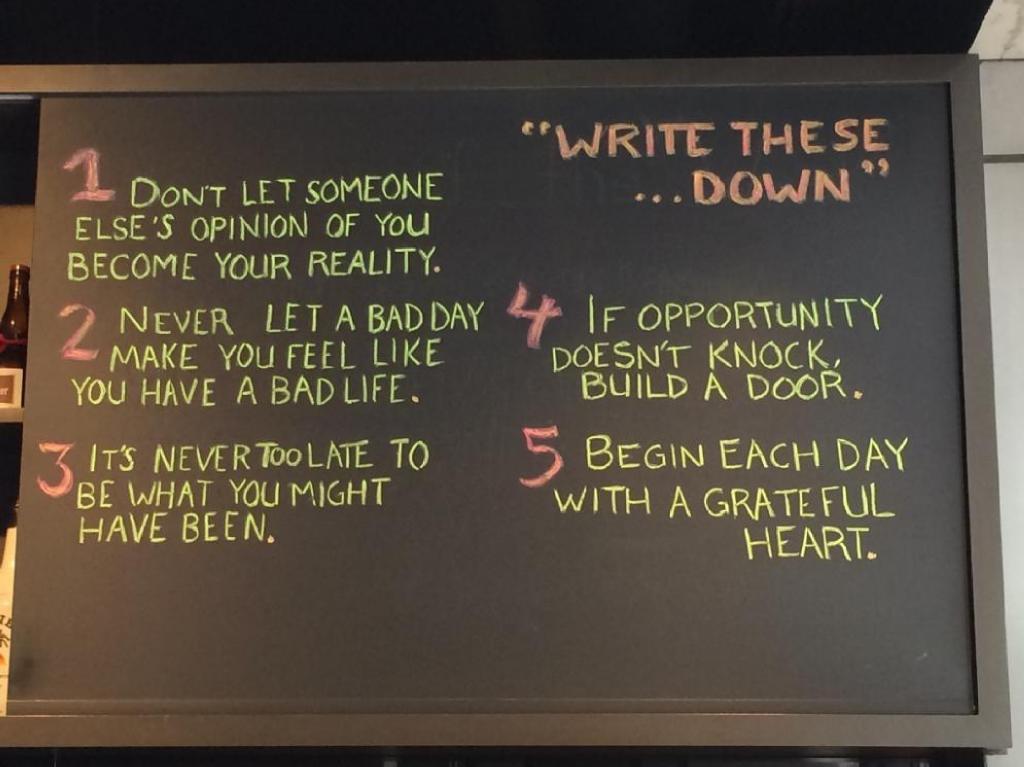 "WRITE THESE
...DOWN"
1 DON'T LET SOMEONE
ELSE'S OPINION OF YOU
BECOME YOUR REALITY.
2 NEVER LET A BAD DAY
MAKE YOU FEEL LIKE
YOU HAVE A BAD LIFE.
3 IT'S NEVER TOO LATE TO
BE WHAT YOU MIGHT
HAVE BEEN.
4 IF OPPORTUNITY
DOESN'T KNOCK,
BUILD A DOOR.
5 BEGIN EACH DAY
WITH A GRATEFUL
HEART.